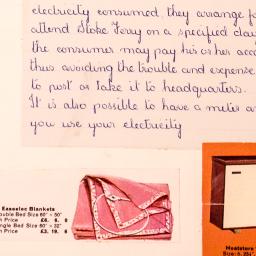 electricity consumed, they arrange fo
attend Stoke Ferry on a specified day
the consumer may pay his or her acco
thus avoiding the trouble and expense
to post or take it to headquarters.
It is also possible to have a meter a
you use your electricity
Easeelec Blankets
ouble Bed Size 60" × 50"
h Price £6. 6. 0
ngle Bed Size 60" × 32"
h Price £3. 19. 6
Heatstore